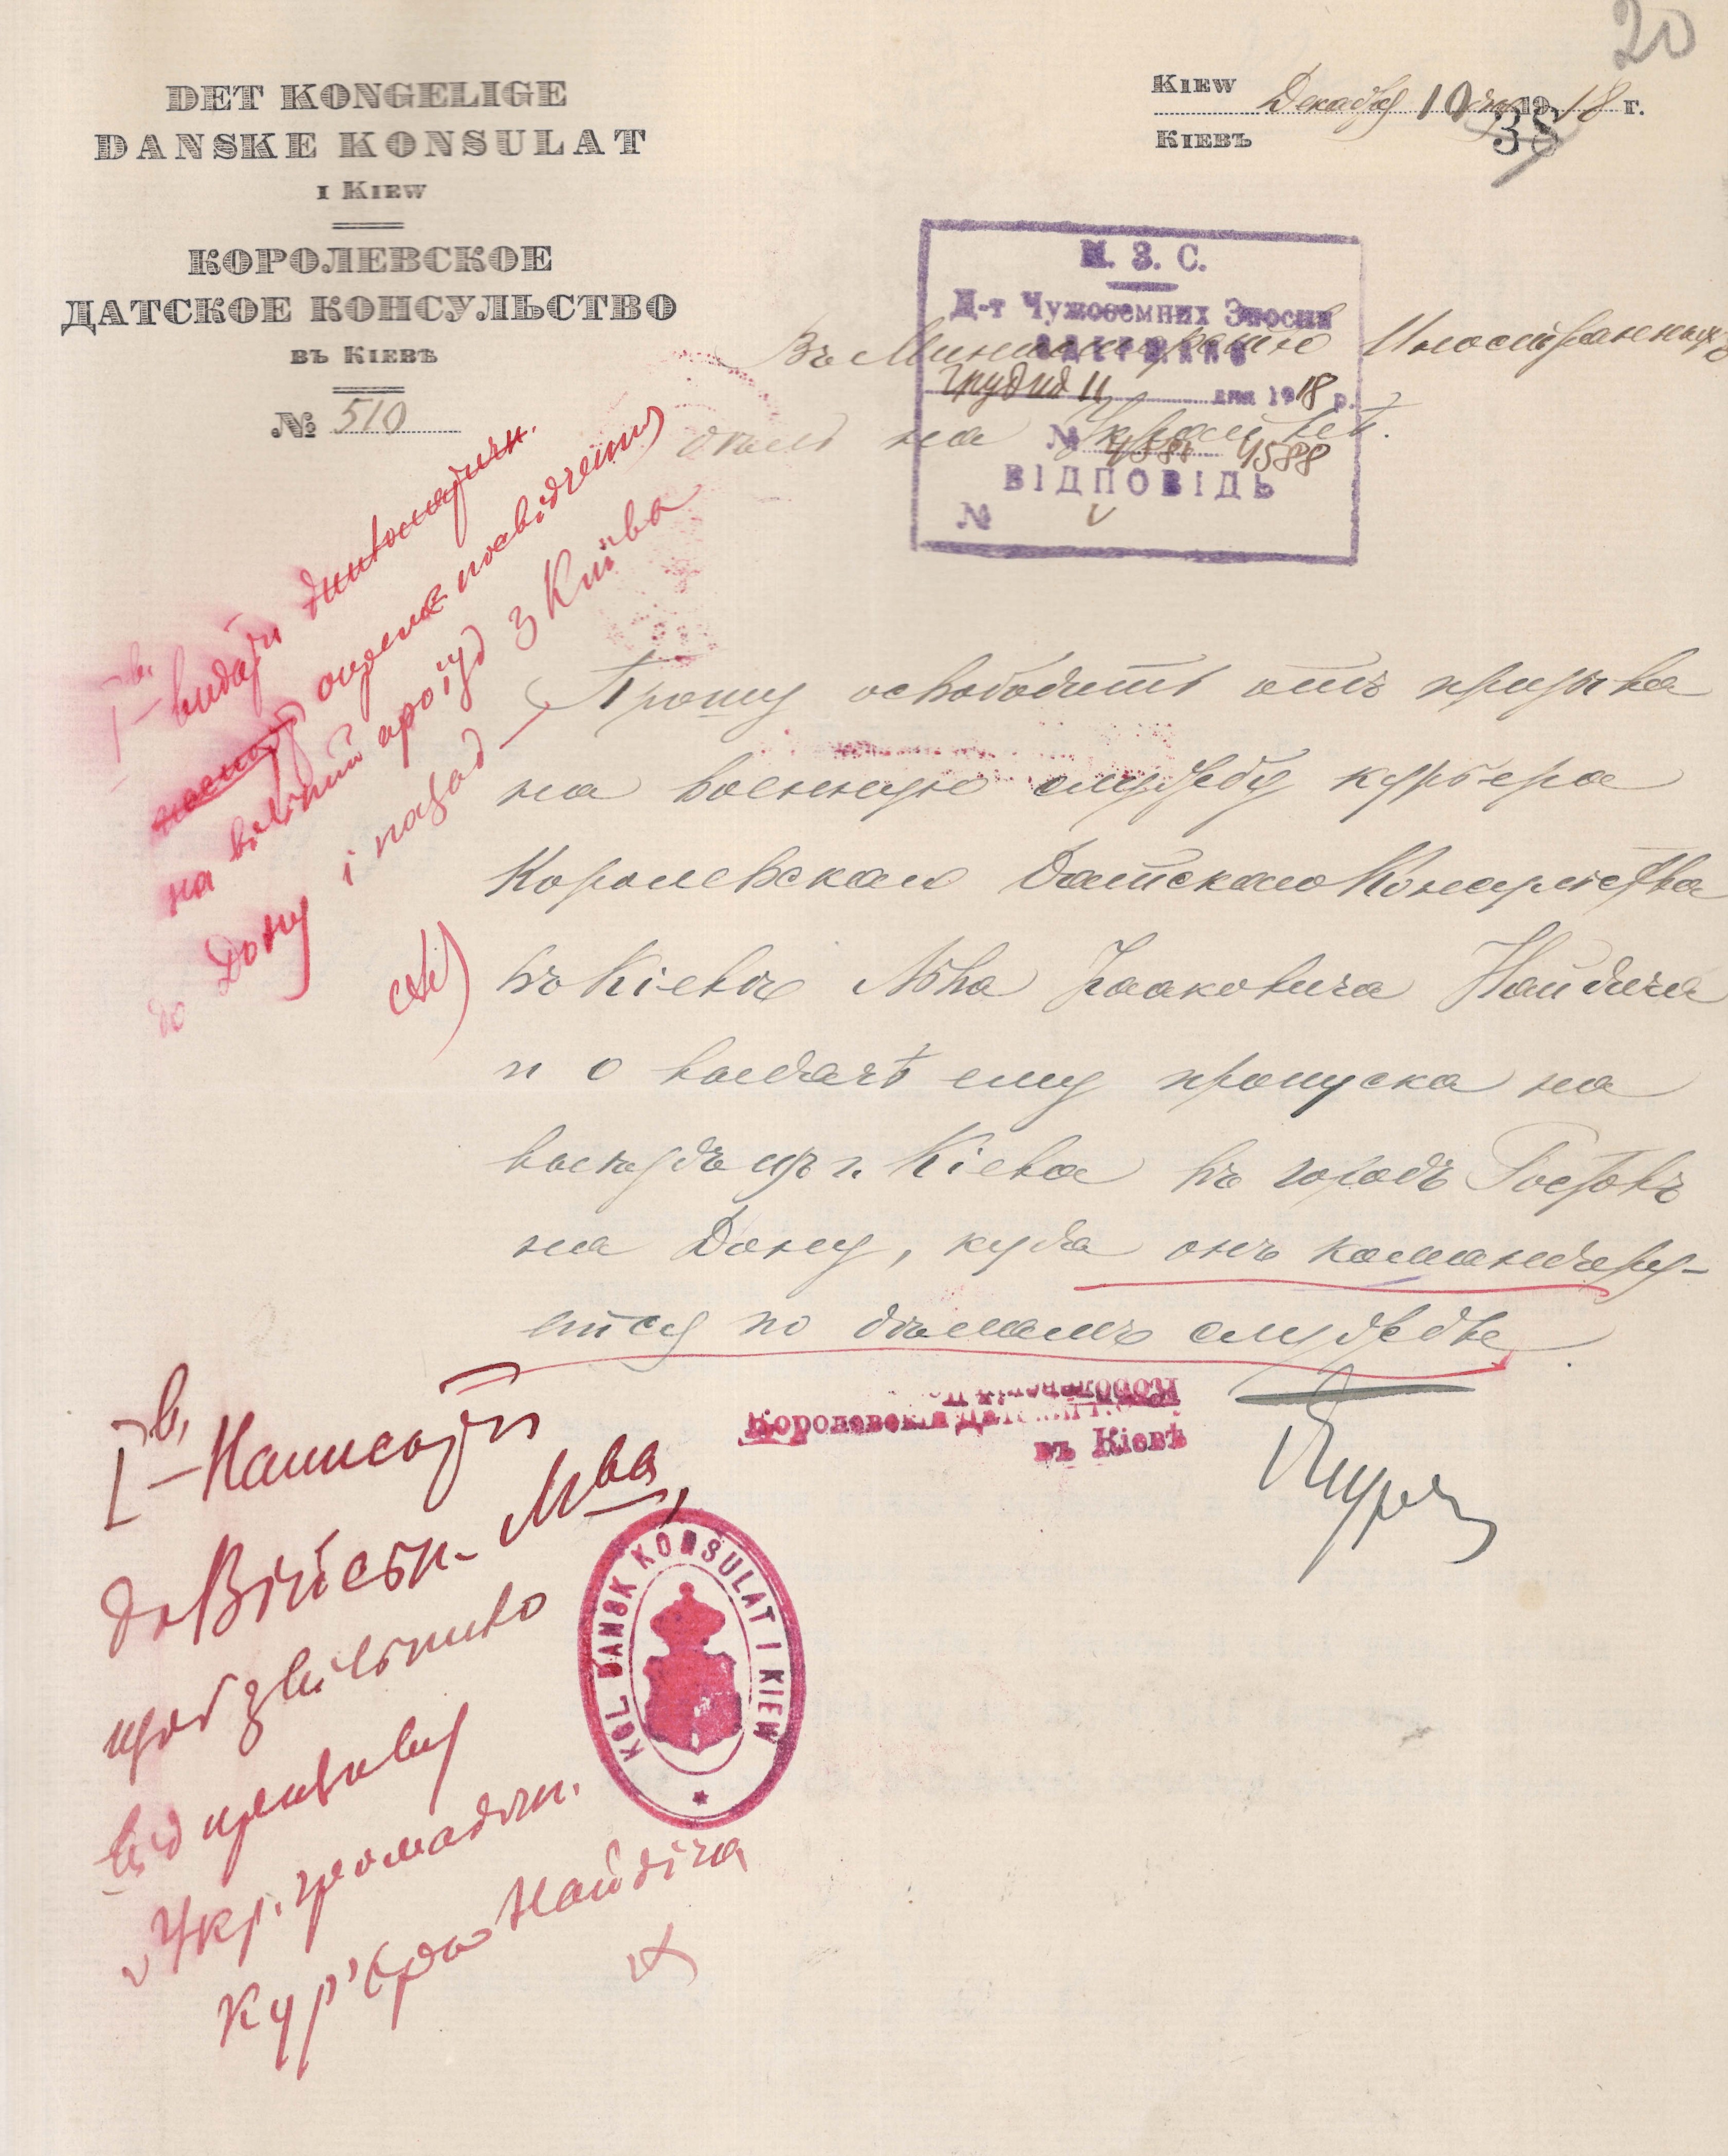 20
DET KONGELIGE
DANSKE KONSULAT
I KIEW
КОРОЛЕВСКОЕ
ДАТСКОЕ КОНСУЛЬСТВО
ВЪ КІЕВѢ
№ 510
KIEW
КІЕВЪ
Декабря 10 дня 1918 г.
38
М. З. С.
Д-т Чужоземних Зносин
ОДЕРЖАНО
Грудня 11 дня 1918 р.
№ 4588 4588
ВІДПОВІДЬ
№
Въ Министерство Иностранныхъ
дѣлъ на Украинѣ.
Прошу освободить отъ призыва
на военную службу курьера
Королевскаго Датскаго Консульства
въ Кіевѣ Льва Исааковича Найдича
и о выдачѣ ему пропуска на
выездъ изъ г. Кіева въ городъ Ростовъ
на Дону, куда онъ командиру-
ется по дѣламъ службы.
Королевскій Датскій
въ Кіевѣ
KGL. DANSK KONSULAT I KIEW
Iв. – видати дипломатичн.
окреме посвідчення
на вільний проїзд з Київа
до Дону і назад –
Iв. – Написати
до Військ. М-ва,
щоб звільнино
від призову
Укр. громадян.
Кур'єра Найдіча